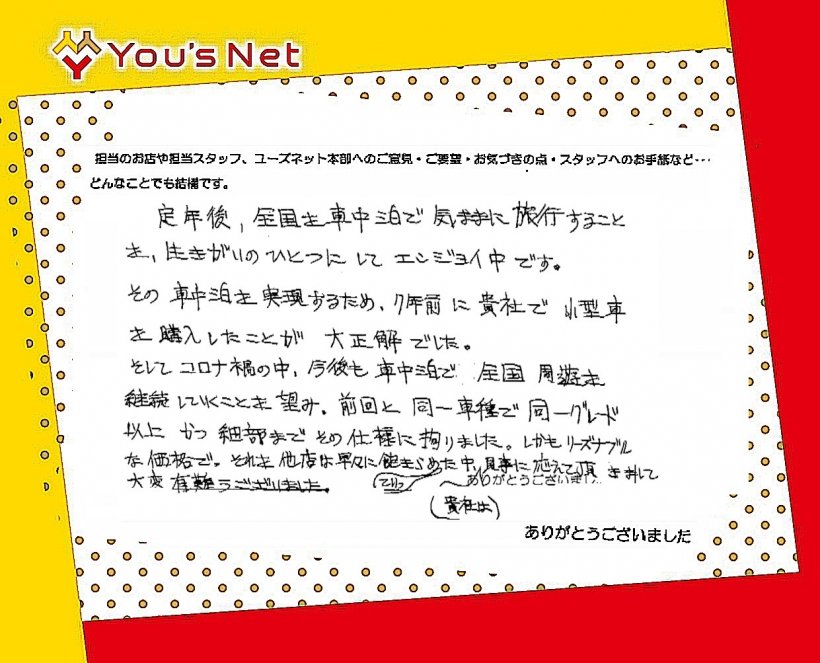 You's Net
担当のお店や担当スタッフ、ユーズネット本部へのご意見・ご要望・お気づきの点・スタッフへのお手紙など・・・
どんなことでも結構です。
定年後, 全国を車中泊で気ままに旅行すること
を, 生きがいのひとつにして エンジョイ中です。
その 車中泊を実現するため, 7年前に貴社で 小型車
を購入したことが 大正解でした。
そしてコロナ禍の中, 今後も 車中泊で 全国 周遊を
継続していくことを望み, 前回と 同一車種で同一グレード
以上 かつ 細部までその仕様に拘りました。しかもリーズナブル
な価格で。それを他店は早々に あきらめた中, 見事に応えて頂きまして
大変有難うございました。
ありがとうございま
(貴社は)
ありがとうございました